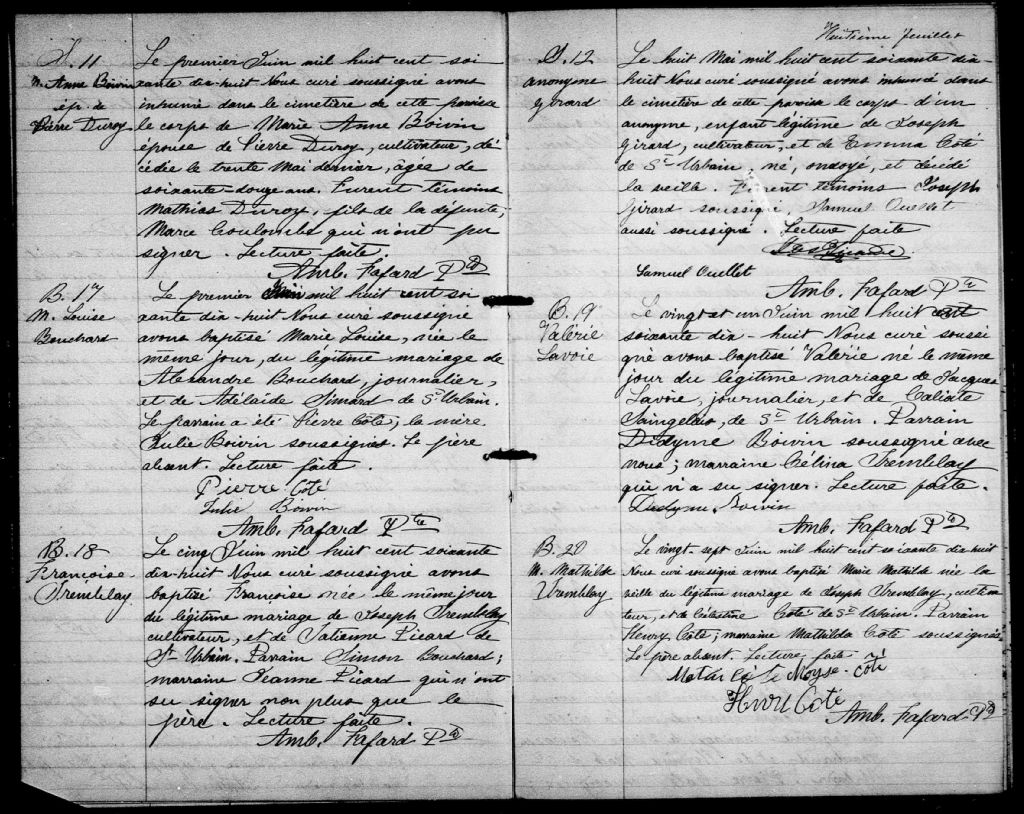 S. 11
M. Anne Boivin
ép. de
Pierre Duroy
Le premier Juin mil huit cent soi
xante dix-huit Nous curé soussigné avons
inhumé dans le cimetière de cette paroisse
le corps de Marie Anne Boivin
épouse de Pierre Duroy, cultivateur, dé
cédée le trente Mai dernier, âgée de
soixante-douze ans. Furent témoins
Mathias Duroy, fils de la défunte,
Marc Coulombe qui n'ont pu
signer. Lecture faite.
Amb. Fafard Ptre
B. 17
M. Louise
Bouchard
Le premier Juin mil huit cent soi
xante dix-huit Nous curé soussigné
avons baptisé Marie Louise, née le
même jour, du légitime mariage de
Alexandre Bouchard, journalier,
et de Adélaide Simard de St Urbain.
Le parrain a été Pierre Coté, la mère
Julie Boivin soussignés. Le père
absent. Lecture faite.
Pierre Coté
Julie Boivin
Amb. Fafard Ptre
B. 18
Françoise
Tremblay
Le cinq Juin mil huit cent soixante
dix-huit Nous curé soussigné avons
baptisé Françoise née le même jour
du légitime mariage de Joseph Tremblay
cultivateur, et de Picard de
St Urbain. Parrain Simon Bouchard;
marraine Jeanne Picard qui n'ont
su signer non plus que le
père. Lecture faite.
Amb. Fafard Ptre
Huitième feuillet
S. 12
anonyme
Girard
Le huit Mai mil huit cent soixante dix-
huit Nous curé soussigné avons inhumé dans
le cimetère de cette paroisse le corps d'un
anonyme, enfant légitime de Joseph
Girard, cultivateur, et de Emma Coté
de St Urbain, né, ondoyé, et décédé
la veille. Furent témoins Joseph
Girard soussigné, Samuel Ouellet
aussi soussigné. Lecture faite
Samuel Ouellet
Amb. Fafard Ptre
B. 19
Valérie
Lavoie
Le vingt et un Juin mil huit cent
soixante dix-huit Nous curé soussi
gné avons baptisé Valérie né le même
jour du légitime mariage de Jacques
Lavoie, journalier, et de
Saingelais, de St Urbain. Parrain
Didyme Boivin soussigné avec
nous; marraine Célina Tremblay
qui n'a su signer. Lecture faite.
Didyme Boivin
Amb. Fafard Ptre
B. 20
M. Mathilde
Tremblay
Le vingt-sept Juin mil huit cent soixante dix-huit
Nous curé soussigné avons baptisé Marie Mathilde née la
veille du légitime mariage de Joseph Tremblay, cultiva
teur, et de Célestine Coté de St Urbain. Parrain
Henry Coté; marraine Mathilda Coté soussignés
Le père absent. Lecture faite
Moyse Coté
Henri Coté
Amb. Fafard Ptre